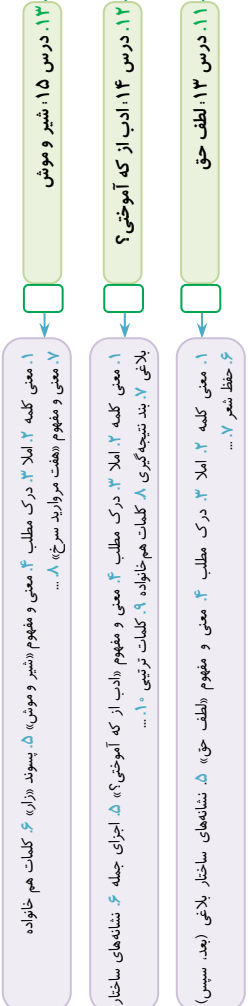 ۱۱. درس ۱۳: لطف حق
۱. معنی کلمه ۲. املا ۳. درک مطلب ۴. معنی و مفهوم «لطف حق» ۵. نشانه‌های ساختار بلاغی (بعد، سپس)
۶. حفظ شعر ۷. ...
۱۲. درس ۱۴: ادب از که آموختی؟
۱. معنی کلمه ۲. املا ۳. درک مطلب ۴. معنی و مفهوم «ادب از که آموختی؟» ۵. اجزای جمله ۶. نشانه‌های ساختار
بلاغی ۷. بند نتیجه‌گیری ۸. کلمات هم‌خانواده ۹. کلمات ترتیبی ۱۰. ...
۱۳. درس ۱۵: شیر و موش
۱. معنی کلمه ۲. املا ۳. درک مطلب ۴. معنی و مفهوم «شیر و موش» ۵. پسوند «زار» ۶. کلمات هم خانواده
۷. معنی و مفهوم «هفت مروارید سرخ» ۸. ...